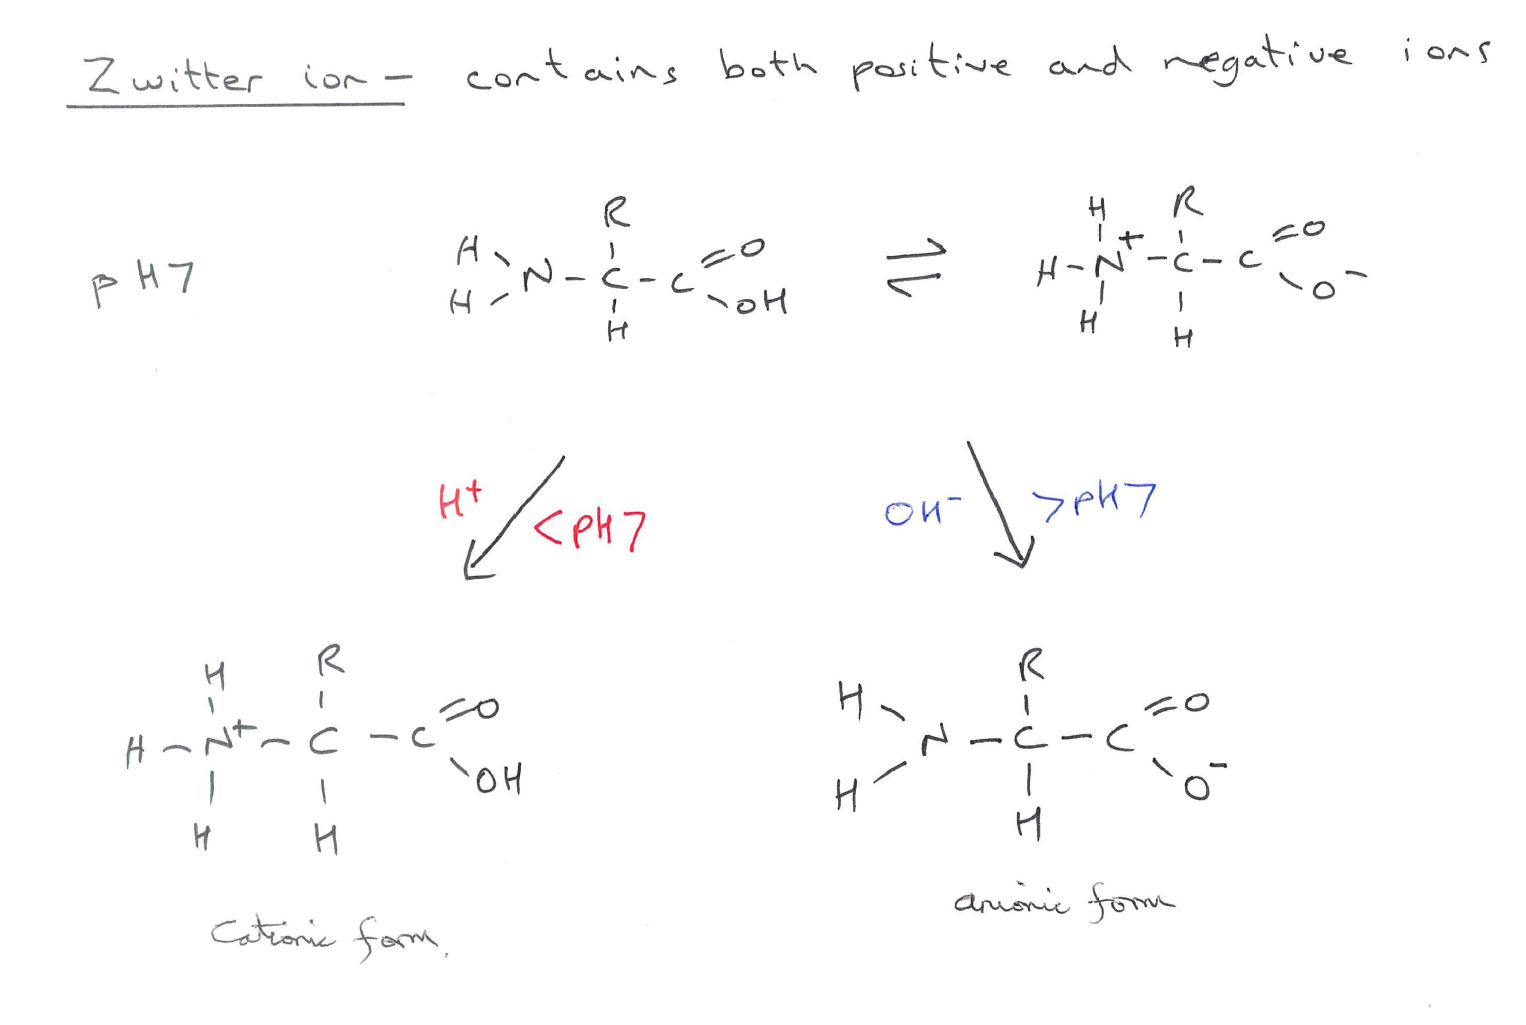 Zwitter ion – contains both positive and negative ions
pH 7
R
H
H
N-C-C
=O
OH
H
⇌
H
R
H-N+-C-C
=O
O-
H
H
H+
<pH7
OH-
>pH7
H
R
H-N+-C-C
=O
OH
H
H
Cationic form.
R
H
H
N-C-C
=O
O-
H
anionic form